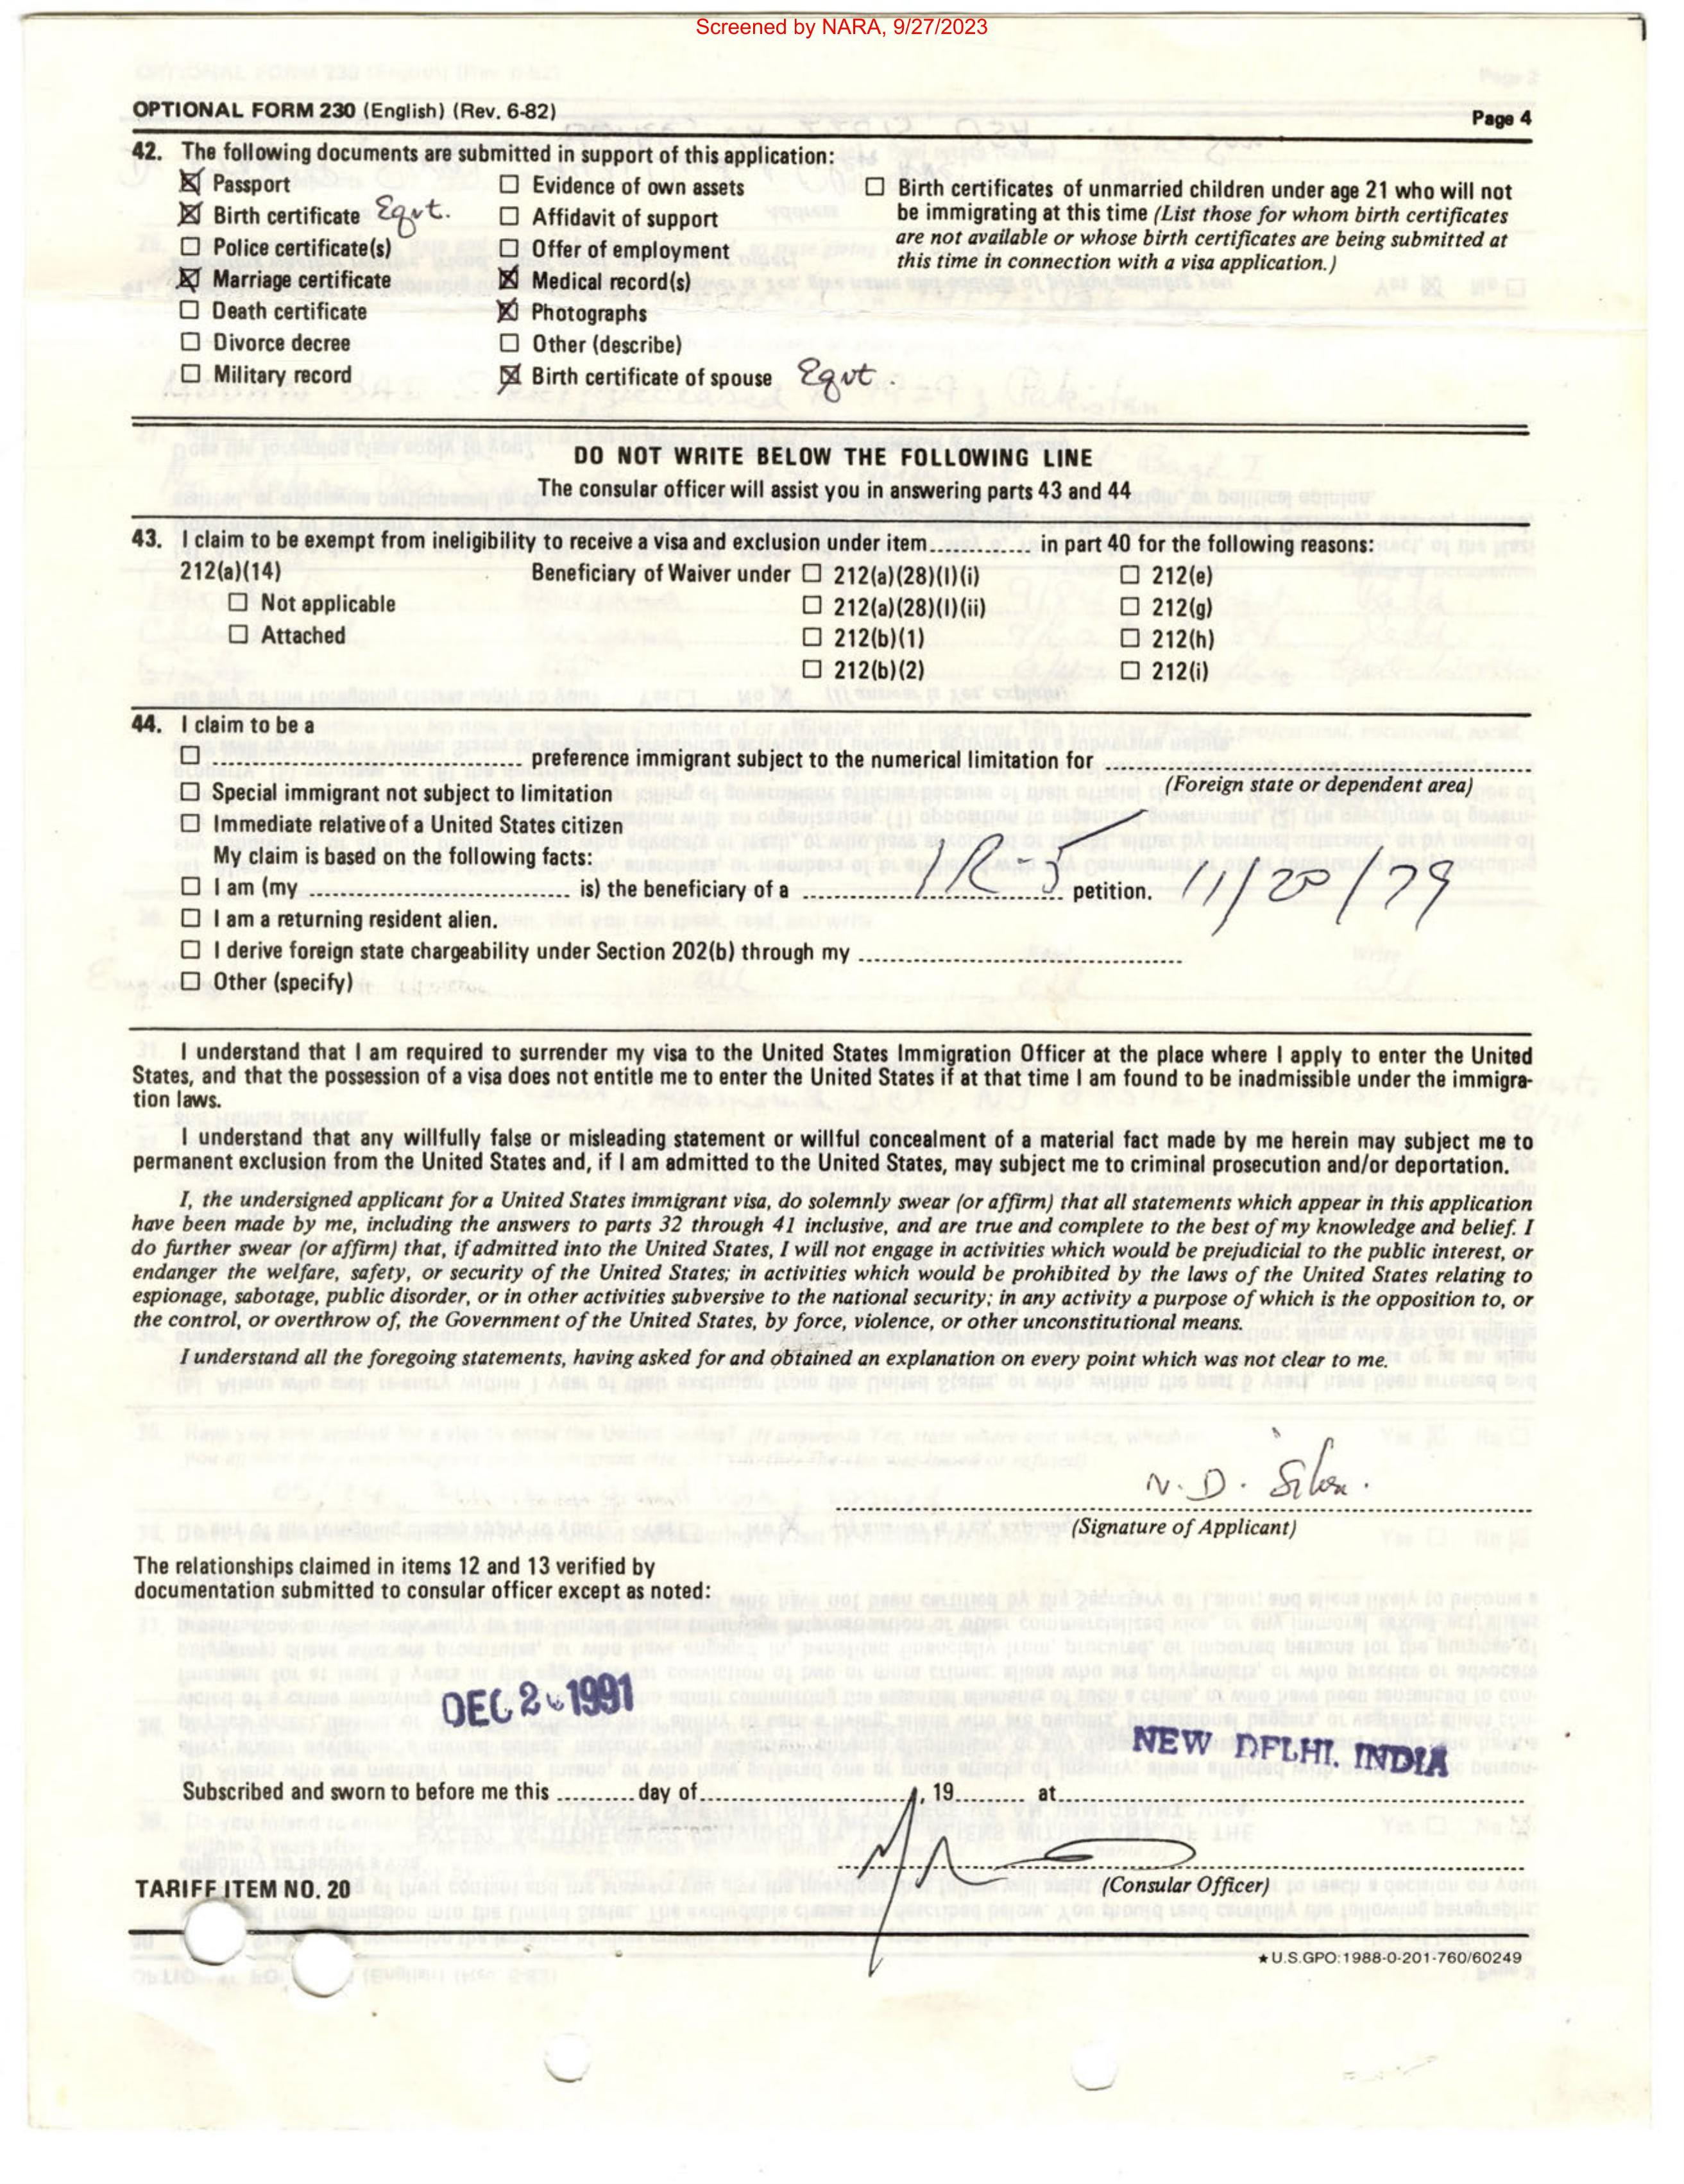 Screened by NARA, 9/27/2023
OPTIONAL FORM 230 (English) (Rev. 6-82)
Page 4
42. The following documents are submitted in support of this application:
☒ Passport
☒ Birth certificate Eqvt.
☐ Police certificate(s)
☒ Marriage certificate
☐ Death certificate
☐ Divorce decree
☐ Military record
☐ Evidence of own assets
☐ Affidavit of support
☐ Offer of employment
☒ Medical record(s)
☒ Photographs
☐ Other (describe)
☒ Birth certificate of spouse Eqvt.
☐ Birth certificates of unmarried children under age 21 who will not
be immigrating at this time (List those for whom birth certificates
are not available or whose birth certificates are being submitted at
this time in connection with a visa application.)
DO NOT WRITE BELOW THE FOLLOWING LINE
The consular officer will assist you in answering parts 43 and 44
43. I claim to be exempt from ineligibility to receive a visa and exclusion under item............. in part 40 for the following reasons:
212(a)(14)
☐ Not applicable
☐ Attached
Beneficiary of Waiver under ☐ 212(a)(28)(I)(i)
☐ 212(a)(28)(I)(ii)
☐ 212(b)(1)
☐ 212(b)(2)
☐ 212(e)
☐ 212(g)
☐ 212(h)
☐ 212(i)
44. I claim to be a
☐ ........................ preference immigrant subject to the numerical limitation for ........................
(Foreign state or dependent area)
☐ Special immigrant not subject to limitation
☐ Immediate relative of a United States citizen
My claim is based on the following facts:
☐ I am (my ........................ is) the beneficiary of a IR-5 petition. 11/20/79
☐ I am a returning resident alien.
☐ I derive foreign state chargeability under Section 202(b) through my ........................
☐ Other (specify)
I understand that I am required to surrender my visa to the United States Immigration Officer at the place where I apply to enter the United
States, and that the possession of a visa does not entitle me to enter the United States if at that time I am found to be inadmissible under the immigra-
tion laws.
I understand that any willfully false or misleading statement or willful concealment of a material fact made by me herein may subject me to
permanent exclusion from the United States and, if I am admitted to the United States, may subject me to criminal prosecution and/or deportation.
I, the undersigned applicant for a United States immigrant visa, do solemnly swear (or affirm) that all statements which appear in this application
have been made by me, including the answers to parts 32 through 41 inclusive, and are true and complete to the best of my knowledge and belief. I
do further swear (or affirm) that, if admitted into the United States, I will not engage in activities which would be prejudicial to the public interest, or
endanger the welfare, safety, or security of the United States; in activities which would be prohibited by the laws of the United States relating to
espionage, sabotage, public disorder, or in other activities subversive to the national security; in any activity a purpose of which is the opposition to, or
the control, or overthrow of, the Government of the United States, by force, violence, or other unconstitutional means.
I understand all the foregoing statements, having asked for and obtained an explanation on every point which was not clear to me.
N. D.
(Signature of Applicant)
The relationships claimed in items 12 and 13 verified by
documentation submitted to consular officer except as noted:
DEC 1991
NEW DELHI, INDIA
Subscribed and sworn to before me this .......... day of........................, 19......... at........................
(Consular Officer)
TARIFF ITEM NO. 20
★ U.S.GPO:1988-0-201-760/60249